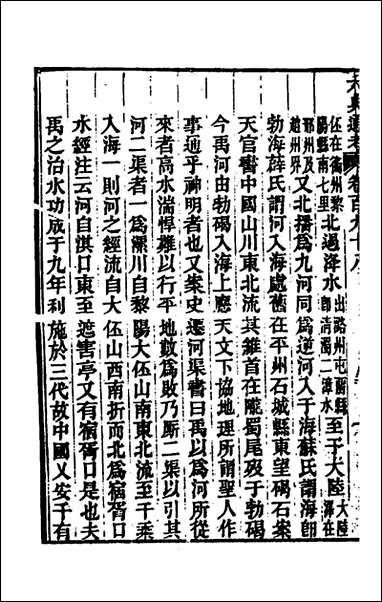 伾在衞州黎陽縣南七里北過洚水出潞州屯留縣卽濁漳二漳水至于大陸大陸澤在
邢州及趙州界又北播爲九河同爲逆河入于海蘇氏謂海卽
勃海薛氏謂河入海處舊在平州石城縣東望碣石案
天官書中國山川東北流其維首在隴蜀尾歿于勃碣
今禹河由勃碣入海上應天文下協地理所謂聖人作
事通乎神明者也又案史遷河渠書曰禹以爲河所從
來者高水湍悍難以行平地數爲敗乃厮二渠以引其
河二渠者一爲漯川自黎陽大伾山南東北流至千乘
入海一則河之經流自大伾山西南折而北爲宿胥口
水經注云河自淇口東至遮害亭又有宿胥口是也夫
禹之治水功成于九年利施於三代故中國乂安千有